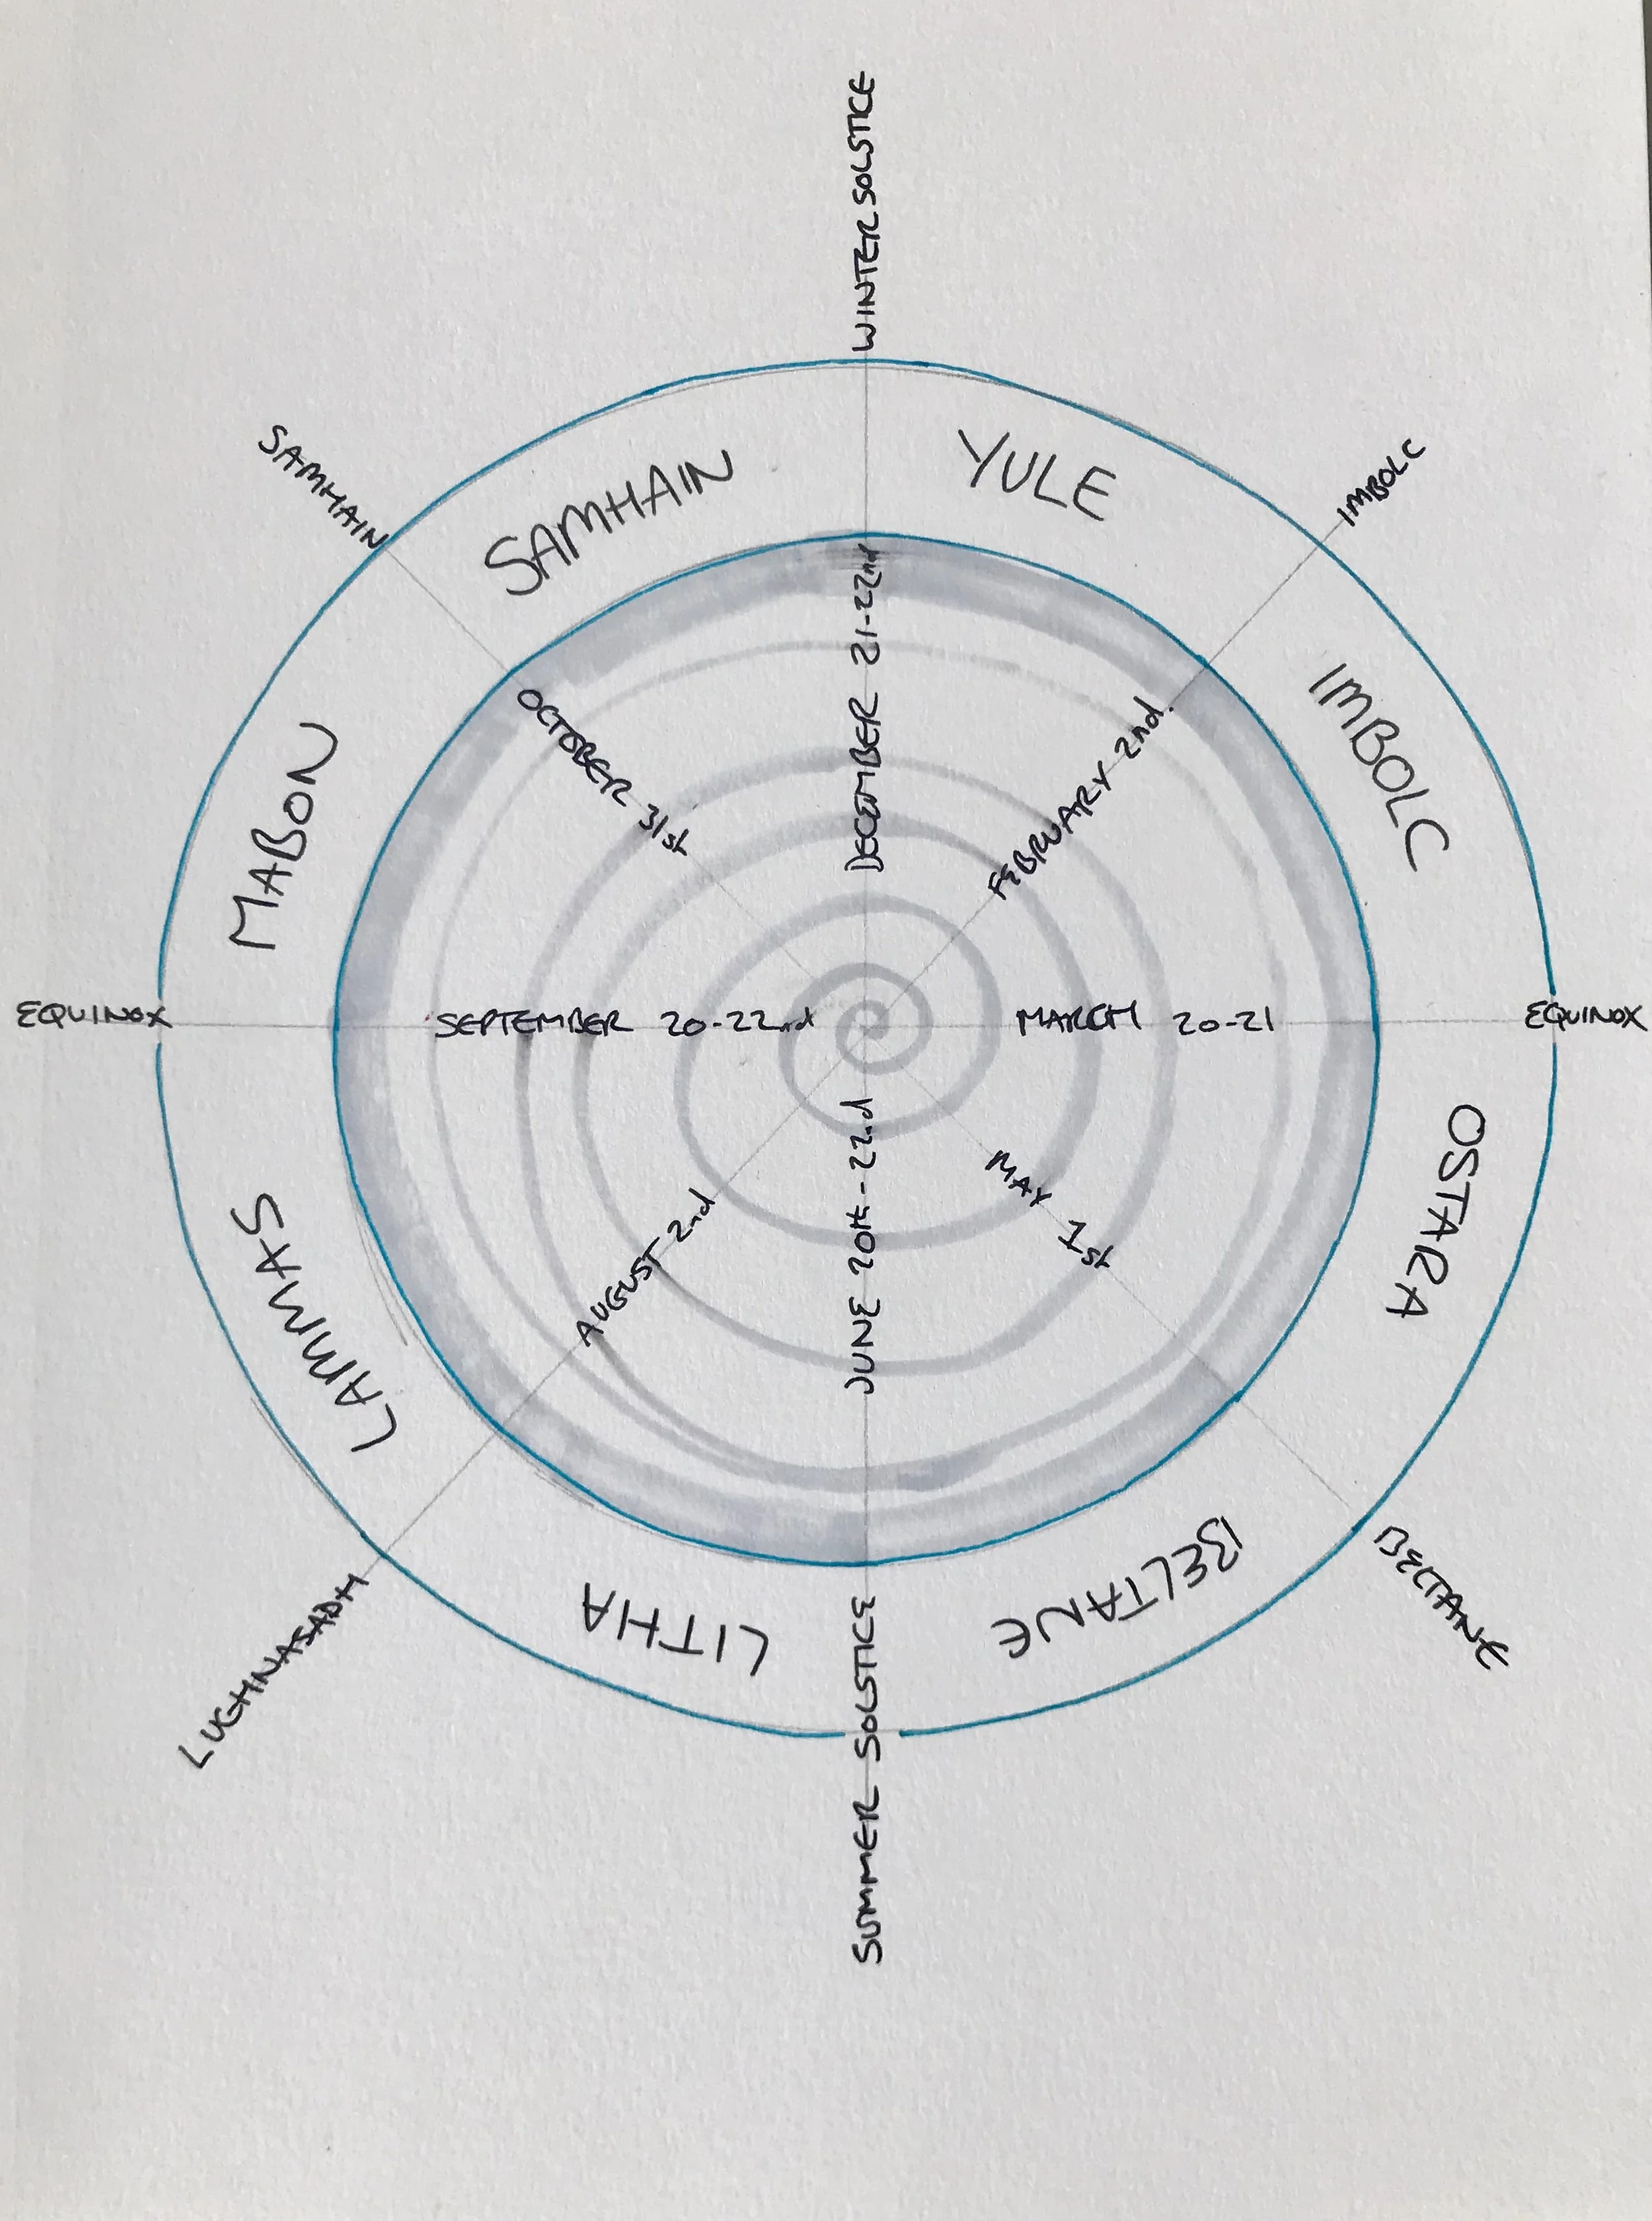 WINTER SOLSTICE
SAMHAIN
IMBOLC
SAMHAIN
YULE
DECEMBER 21-22nd
OCTOBER 31st
FEBRUARY 2nd.
MABON
IMBOLC
EQUINOX
SEPTEMBER 20-22nd
MARCH 20-21
EQUINOX
JUNE 20th-22nd
MAY 1st
AUGUST 2nd
LAMMAS
OSTARA
LITHA
BELTANE
LUGHNASADH
BELTANE
SUMMER SOLSTICE